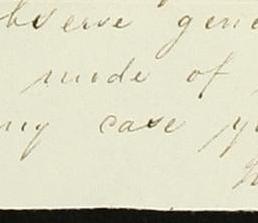 bserve gene
mode of
ny case y